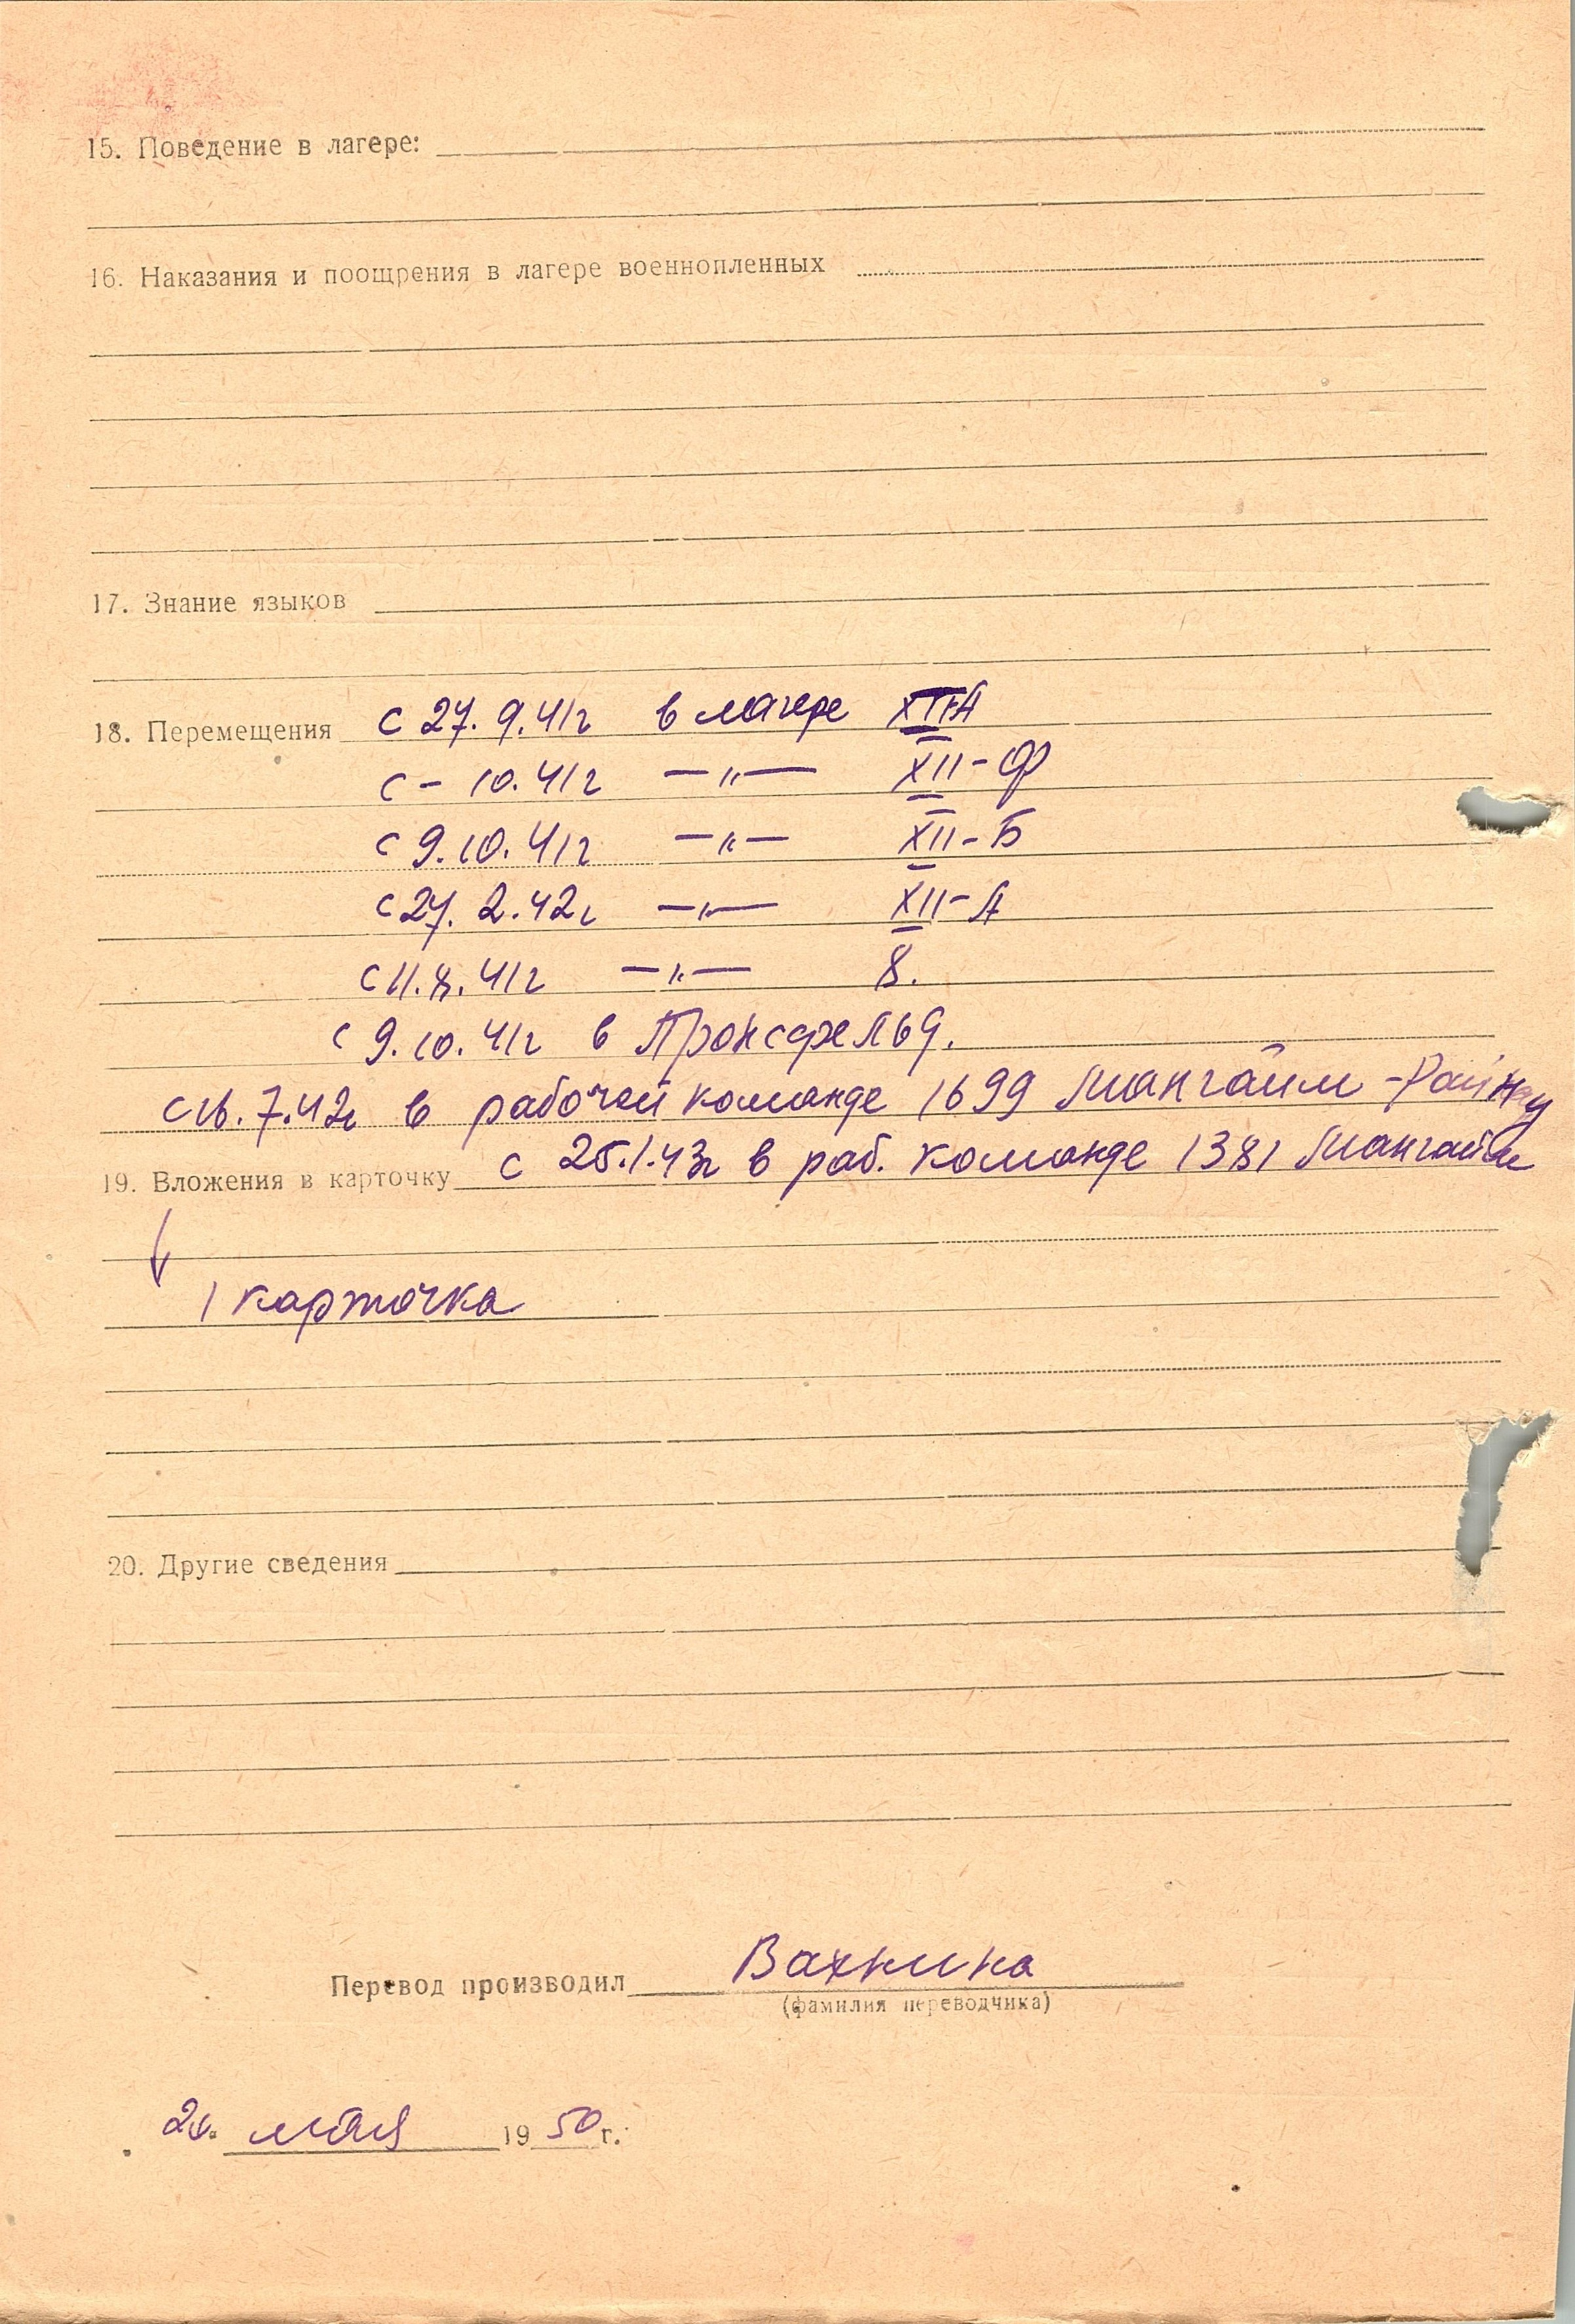 15. Поведение в лагере:
16. Наказания и поощрения в лагере военнопленных
17. Знание языков
18. Перемещения с 27. 9. 41г в лагере XIIА
с – 10. 41г —„— XII-Ф
с 9. 10. 41г —„— XII-Б
с 27. 2. 42г —„— XII-А
с 11. 8. 41г —„— 8.
с 9. 10. 41г в Пронсфельд.
с 16. 7. 42г в рабочей команде 1699 Мангайм -
19. Вложения в карточку с 25. 1. 43г в раб. команде 1381 Мангайм
1 карточка
20. Другие сведения
Перевод производил Вахнина
(фамилия переводчика)
мая 1950 г.